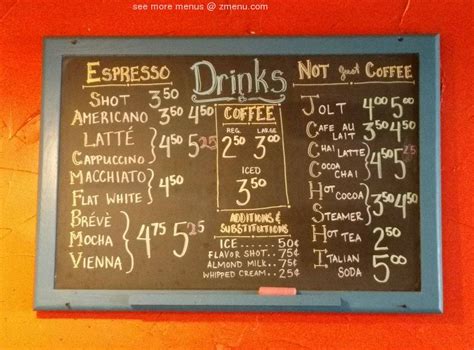 see more menus @ zmenu.com
ESPRESSO
SHOT 3.50
AMERICANO 3.50 4.50
LATTÉ
CAPPUCCINO
4.50 5.25
MACCHIATO
FLAT WHITE
4.50
BRÉVÈ
MOCHA
VIENNA
4.75 5.25
DRINKS
COFFEE
REG. LARGE
2.50 3.00
ICED
3.50
ADDITIONS &
SUBSTITUTIONS
ICE..... 50¢
FLAVOR SHOT.. 75¢
ALMOND MILK.. 75¢
WHIPPED CREAM.. 25¢
NOT just COFFEE
JOLT 4.00 5.00
CAFE AU
LAIT 3.50 4.50
CHAI LATTE
COCOA
CHAI
4.50 5.25
HOT COCOA
STEAMER
3.50 4.50
HOT TEA 2.50
ITALIAN
SODA 5.00